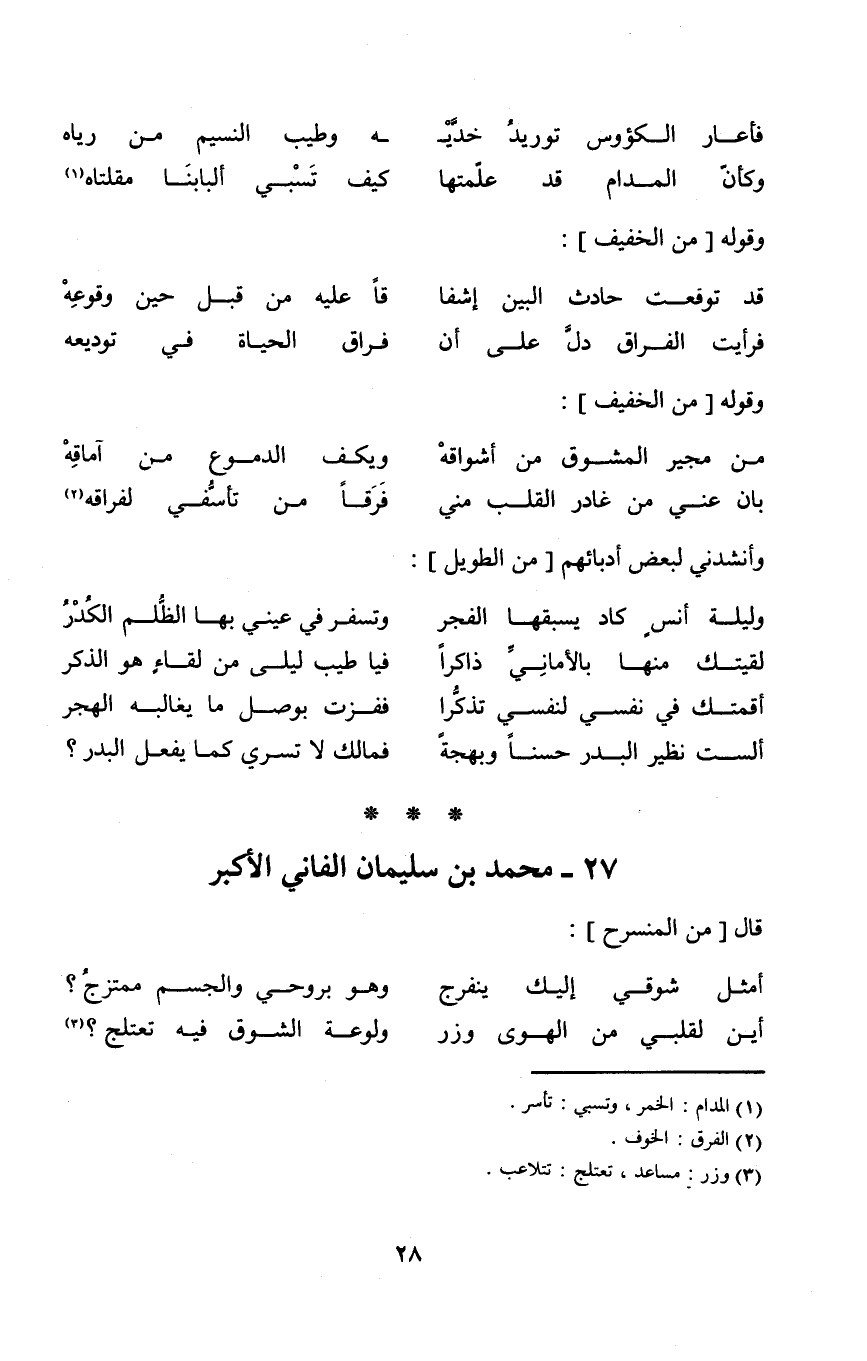 فأعار الكؤوس توريدُ خدَّيْـ ـه وطيب النسيم من رياه
وكأنّ المدام قد علّمتها كيف تَسْبي ألبابنَا مقلتاه(١)
وقوله [ من الخفيف ] :
قد توقعت حادث البين إشفا قاً عليه من قبل حين وقوعِهْ
فرأيت الفراق دلَّ على أن فراق الحياة في توديعه
وقوله [ من الخفيف ] :
من مجير المشوق من أشواقهْ ويكف الدموع من آماقِهْ
بان عني من غادر القلب مني فَرَقاً من تأسُّفي لفراقه(٢)
وأنشدني لبعض أدبائهم [ من الطويل ] :
وليلة أنسٍ كاد يسبقها الفجر وتسفر في عيني بها الظُّلم الكُدْرُ
لقيتك منها بالأمانيِّ ذاكراً فيا طيب ليلى من لقاءٍ هو الذكر
أقمتك في نفسي لنفسي تذكُّرا ففزت بوصل ما يغالبه الهجر
ألست نظير البدر حسناً وبهجةً فمالك لا تسري كما يفعل البدر ؟
* * *
٢٧ ـ محمد بن سليمان الفاني الأكبر
قال [ من المنسرح ] :
أمثل شوقي إليك ينفرج وهو بروحي والجسم ممتزجُ ؟
أين لقلبي من الهوى وزر ولوعة الشوق فيه تعتلج ؟(٣)
(١) المدام : الخمر ، وتسبي : تأسر .
(٢) الفرق : الخوف .
(٣) وزر : مساعد ، تعتلج : تتلاعب .
٢٨